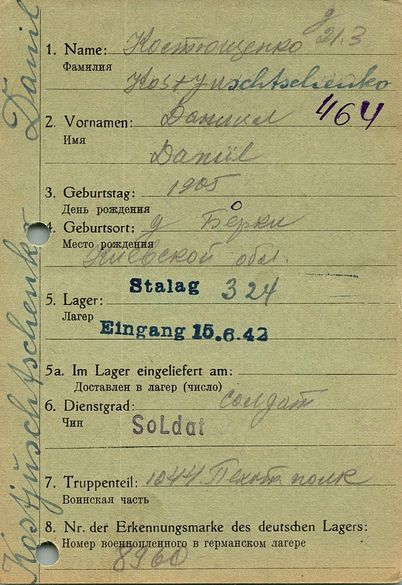 21.3
1. Name: Костющенко
Фамилия
Kostjuschtschenko
2. Vornamen: Даниил 464
Имя
Daniil
3. Geburtstag: 1905
День рождения
4. Geburtsort: д Берки
Место рождения
Киевской обл.
Stalag 324
5. Lager:
Лагер
Eingang 15.6.42
5a. Im Lager eingeliefert am:
Доставлен в лагер (число)
6. Dienstgrad: солдат
Чин
Soldat
7. Truppenteil: 1044 Пехот полк
Воинская часть
8. Nr. der Erkennungsmarke des deutschen Lagers:
Номер военнопленного в германском лагере
8960
Kostjuschtschenko Daniil